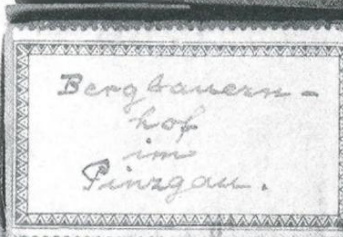 Bergbauern-
hof
im
Pinzgau.